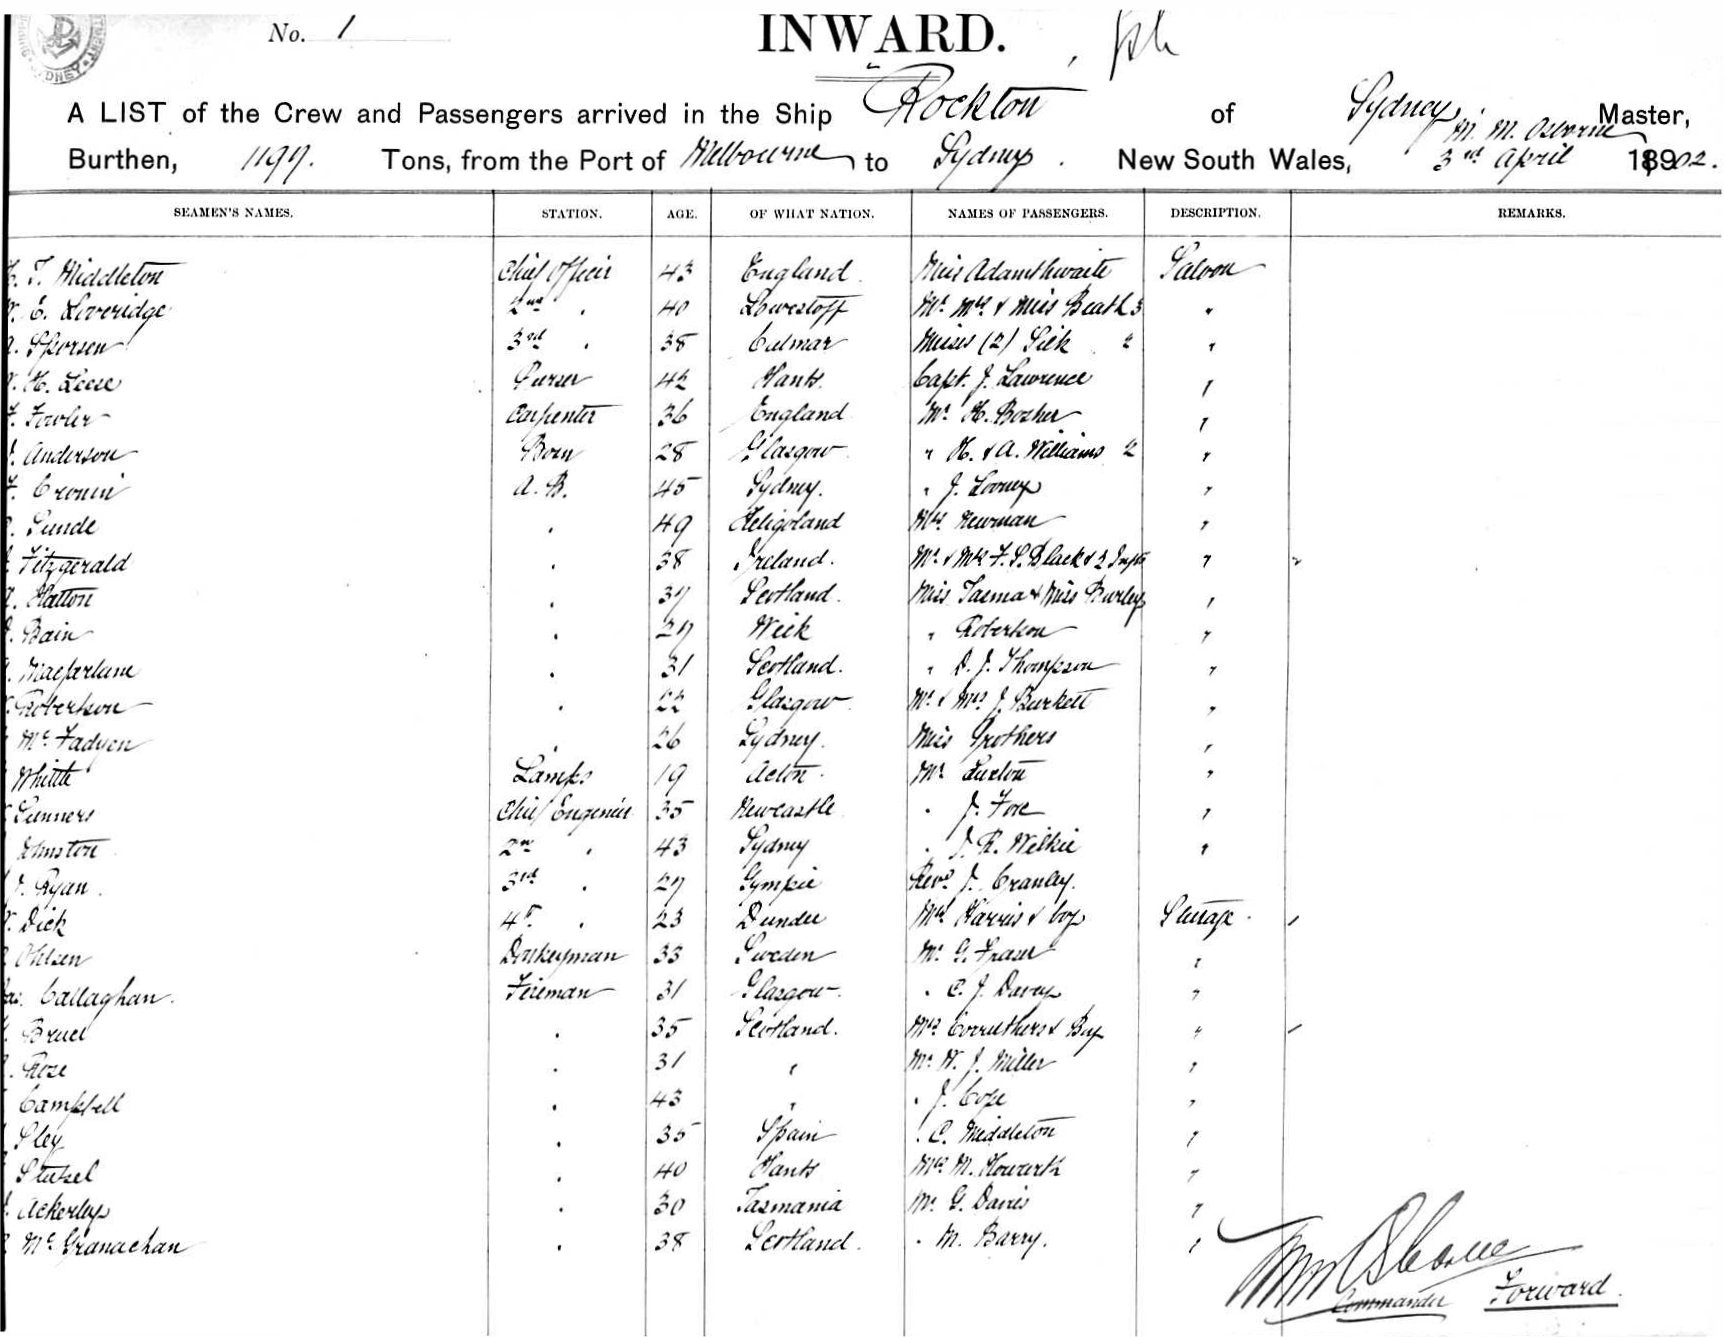 No. 1
INWARD.
A LIST of the Crew and Passengers arrived in the Ship Rockton of Sydney M. M. Osborne Master,
Burthen, 1197. Tons, from the Port of Melbourne to Sydney. New South Wales, 3rd April 1902.
SEAMEN'S NAMES. STATION. AGE. OF WHAT NATION. NAMES OF PASSENGERS. DESCRIPTION. REMARKS.
T. Middleton Chief Officer 43 England. Miss Adamthwaite Saloon
E. Loveridge 2nd " 40 Lowestoff Mr. Mrs. & Miss Beath 3 "
Sporsen 3rd " 38 Calmar Misses (2) Sick 2 "
H. Leese Purser 42 Hants. Capt. J. Lawrence "
Fowler Carpenter 36 England Mr. H. Bosher "
Anderson Bosn 28 Glasgow " H. & A. Williams 2 "
Cronin A. B. 45 Sydney. " J. Looney "
Sunde " 49 Heligoland Mrs. Newman "
Fitzgerald " 38 Ireland. Mr. & Mrs. F. S. Black & 2 Infts "
Hatton " 37 Scotland. Miss Tasma & Miss Burley "
Bain " 27 Wick " Robertson "
Macfarlane " 31 Scotland. " D. J. Thompson "
Robertson " 22 Glasgow Mr. & Mrs. J. Burkett "
McFadyen " 26 Sydney. Miss Grothers "
Whittle Lamps 19 Acton. Mr. Luxton "
Gunners Chief Engineer 35 Newcastle " J. Fox "
Johnston 2nd " 43 Sydney " J. R. Wilkie "
J. Ryan. 3rd " 27 Gympie Revd. J. Cranley. "
Dick 4th " 23 Dundee Mrs. Harris & boy Steerage.
Ohlsen Donkeyman 33 Sweden Mr. G. Fraser "
Jas. Callaghan. Fireman 31 Glasgow. " C. J. Davey "
Bruce " 35 Scotland. Mrs. Corruthers & Boy "
Rose " 31 " Mr. W. J. Miller "
Campbell " 43 " " J. Cope "
Sley " 35 Spain " C. Middleton "
Stutzel " 40 Hants Mrs. M. Howarth "
Ackerley " 30 Tasmania Mr. G. Davis "
McGranachan " 38 Scotland. " M. Barry. "
Wm Osborne
Commander Forward.